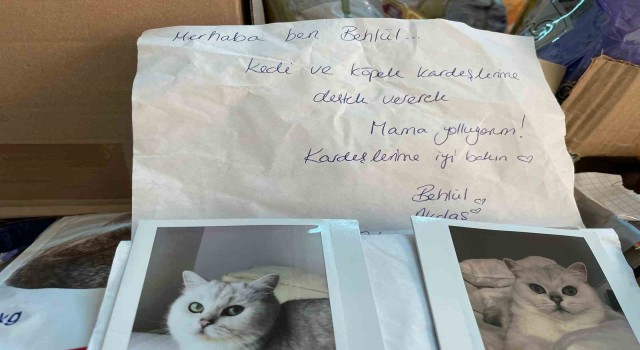 Merhaba ben Behlül...
Kedi ve köpek kardeşlerime
destek vererek
Mama yolluyorum!
Kardeşlerime iyi bakın ♡
Behlül ♡
Akdaş ♡
kg